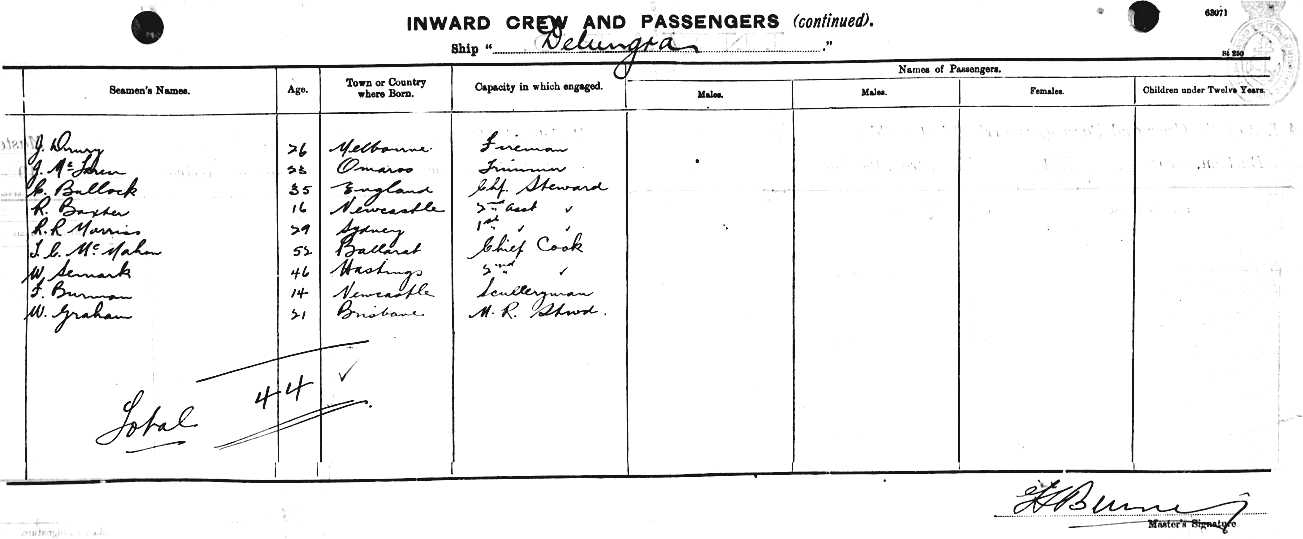 INWARD CREW AND PASSENGERS (continued).
63071
Ship "Delungra."
St 280
Seamen's Names. Age. Town or Country where Born. Capacity in which engaged. Names of Passengers.
Males. Males. Females. Children under Twelve Years.
J. Drury 26 Melbourne Fireman
J. Mc 23 Omaroo Trimmer
C. Bullock 35 England Chf. Steward
R. Baxter 16 Newcastle 2nd Asst ✓
R. R Morris 29 Sydney 1st " ✓
T. C. McMahon 52 Ballarat Chief Cook
W. Semark 46 Hastings 2nd " ✓
F. Burman 14 Newcastle Sculleryman
W. Graham 21 Brisbane M. R. Stwd.
Total 44 ✓
Master's Signature